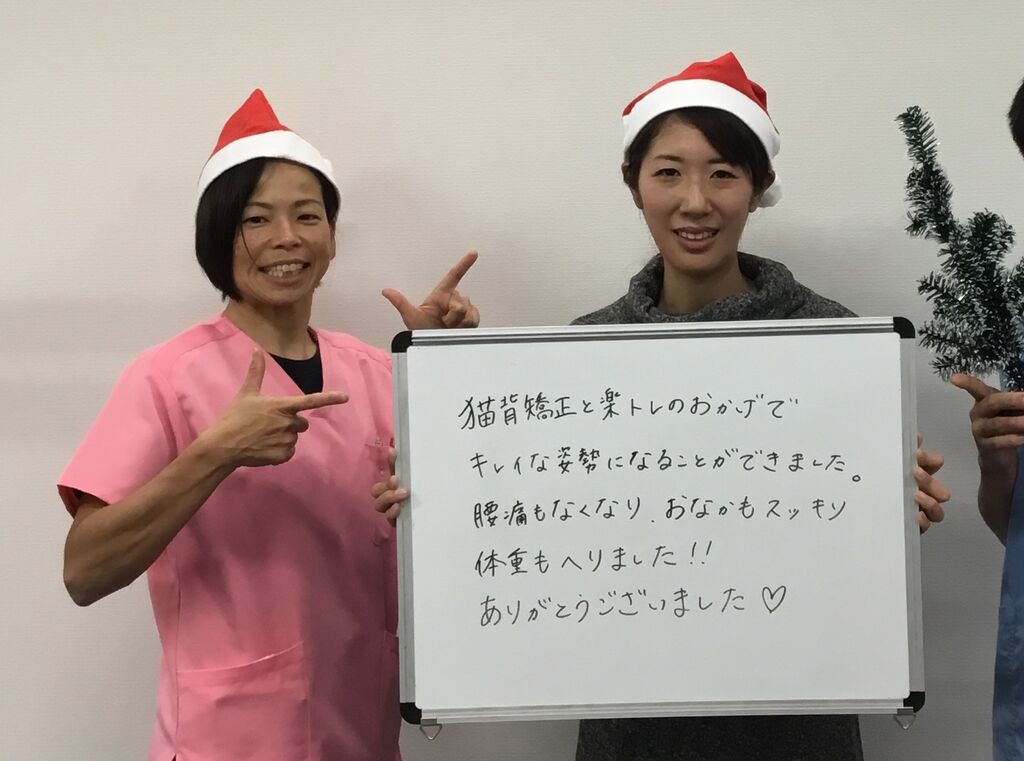 猫背矯正と楽トレのおかげで
キレイな姿勢になることができました。
腰痛もなくなり、おなかもスッキリ
体重もへりました!!
ありがとうございました♡